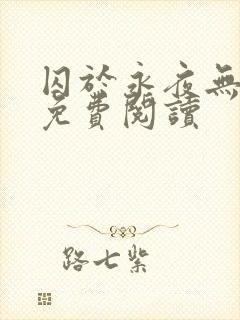 囚於永夜無
免費閱讀
路七紫